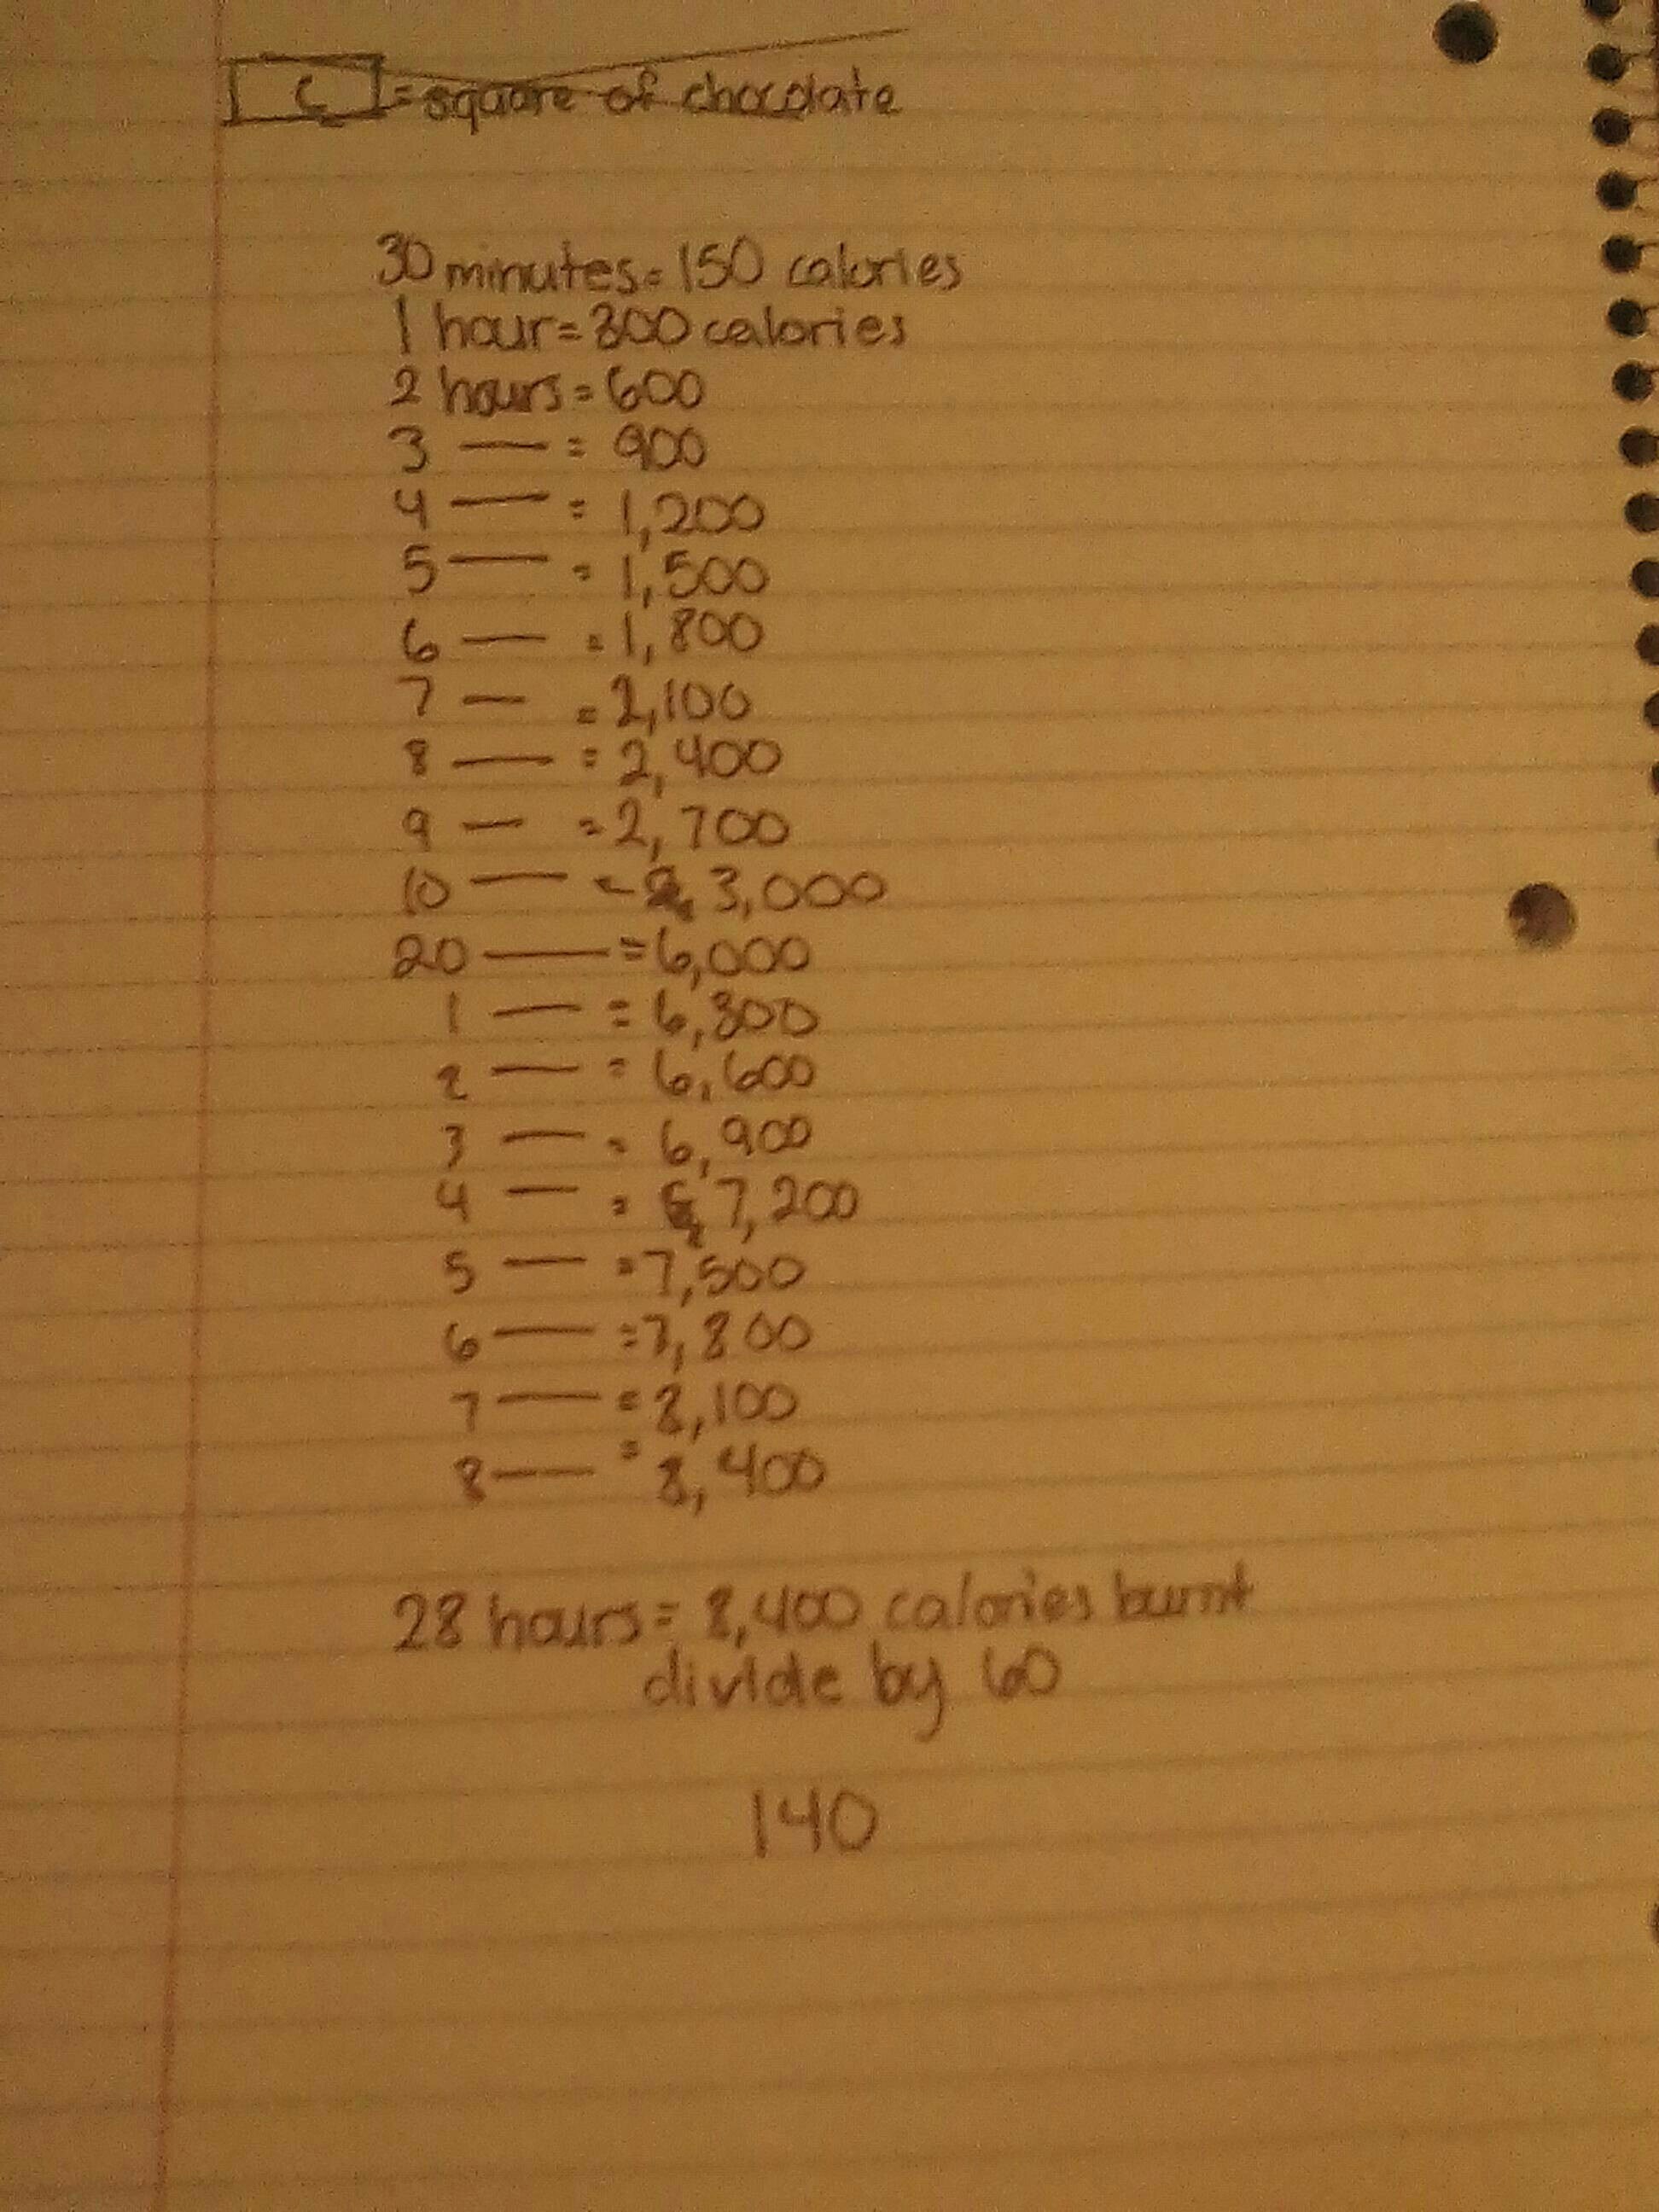 C = square of chocolate
30 minutes = 150 calories
1 hour = 300 calories
2 hours = 600
3 — = 900
4 — = 1,200
5 — = 1,500
6 — = 1,800
7 — = 2,100
8 — = 2,400
9 — = 2,700
10 — = 3,000
20 — = 6,000
1 — = 6,300
2 — = 6,600
3 — = 6,900
4 — = 7,200
5 — = 7,500
6 — = 7,800
7 — = 8,100
8 — = 8,400
28 hours = 8,400 calories burnt
divide by 60
140